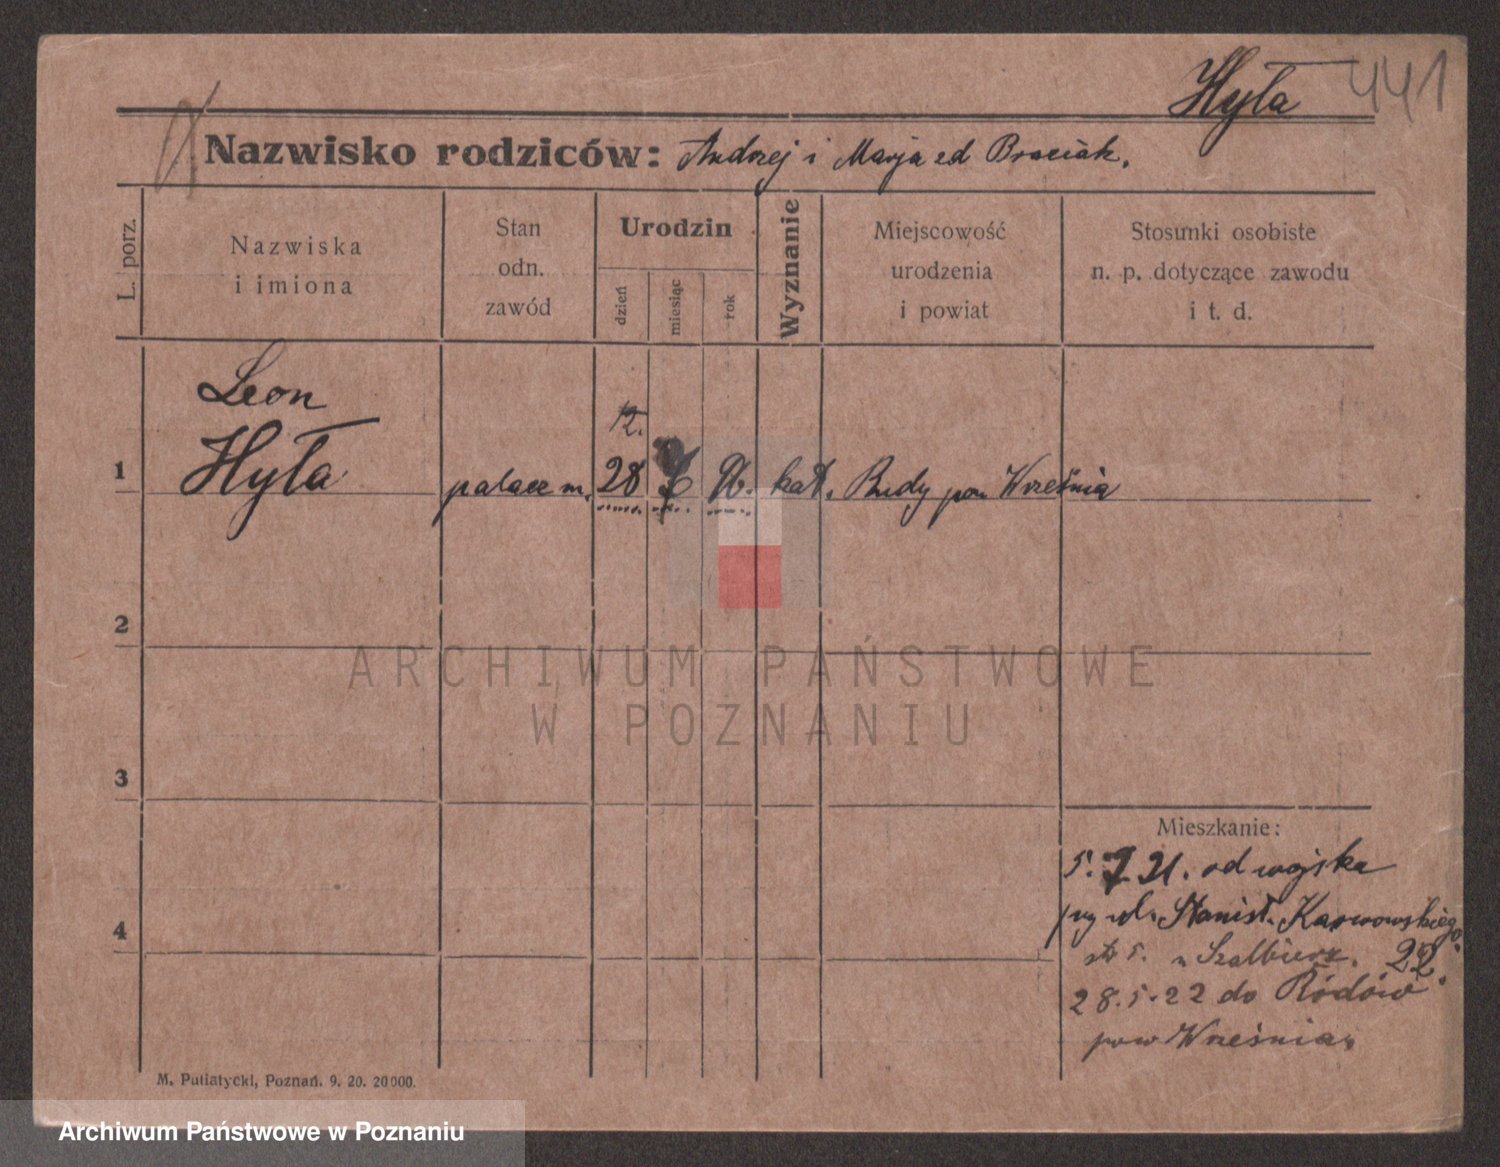 Hyła 441
Nazwisko rodziców: Andrzej i Marja zd Braciak.
L. porz.
Nazwiska
i imiona
Stan
odn.
zawód
Urodzin
dzień
miesiąc
rok
Wyznanie
Miejscowość
urodzenia
i powiat
Stosunki osobiste
n. p. dotyczące zawodu
i t. d.
Leon
12.
1 Hyła palacz m. 28 96. kat. Rudy pow Września
2
3
4
ARCHIWUM PAŃSTWOWE
W POZNANIU
Mieszkanie:
5. 7 21. od wojska
przy ul. Stanisł. Karwowskiego
5. u 22.
28.5.22 do
pow Września.
M. Putiatycki, Poznań. 9. 20. 20000.
Archiwum Państwowe w Poznaniu